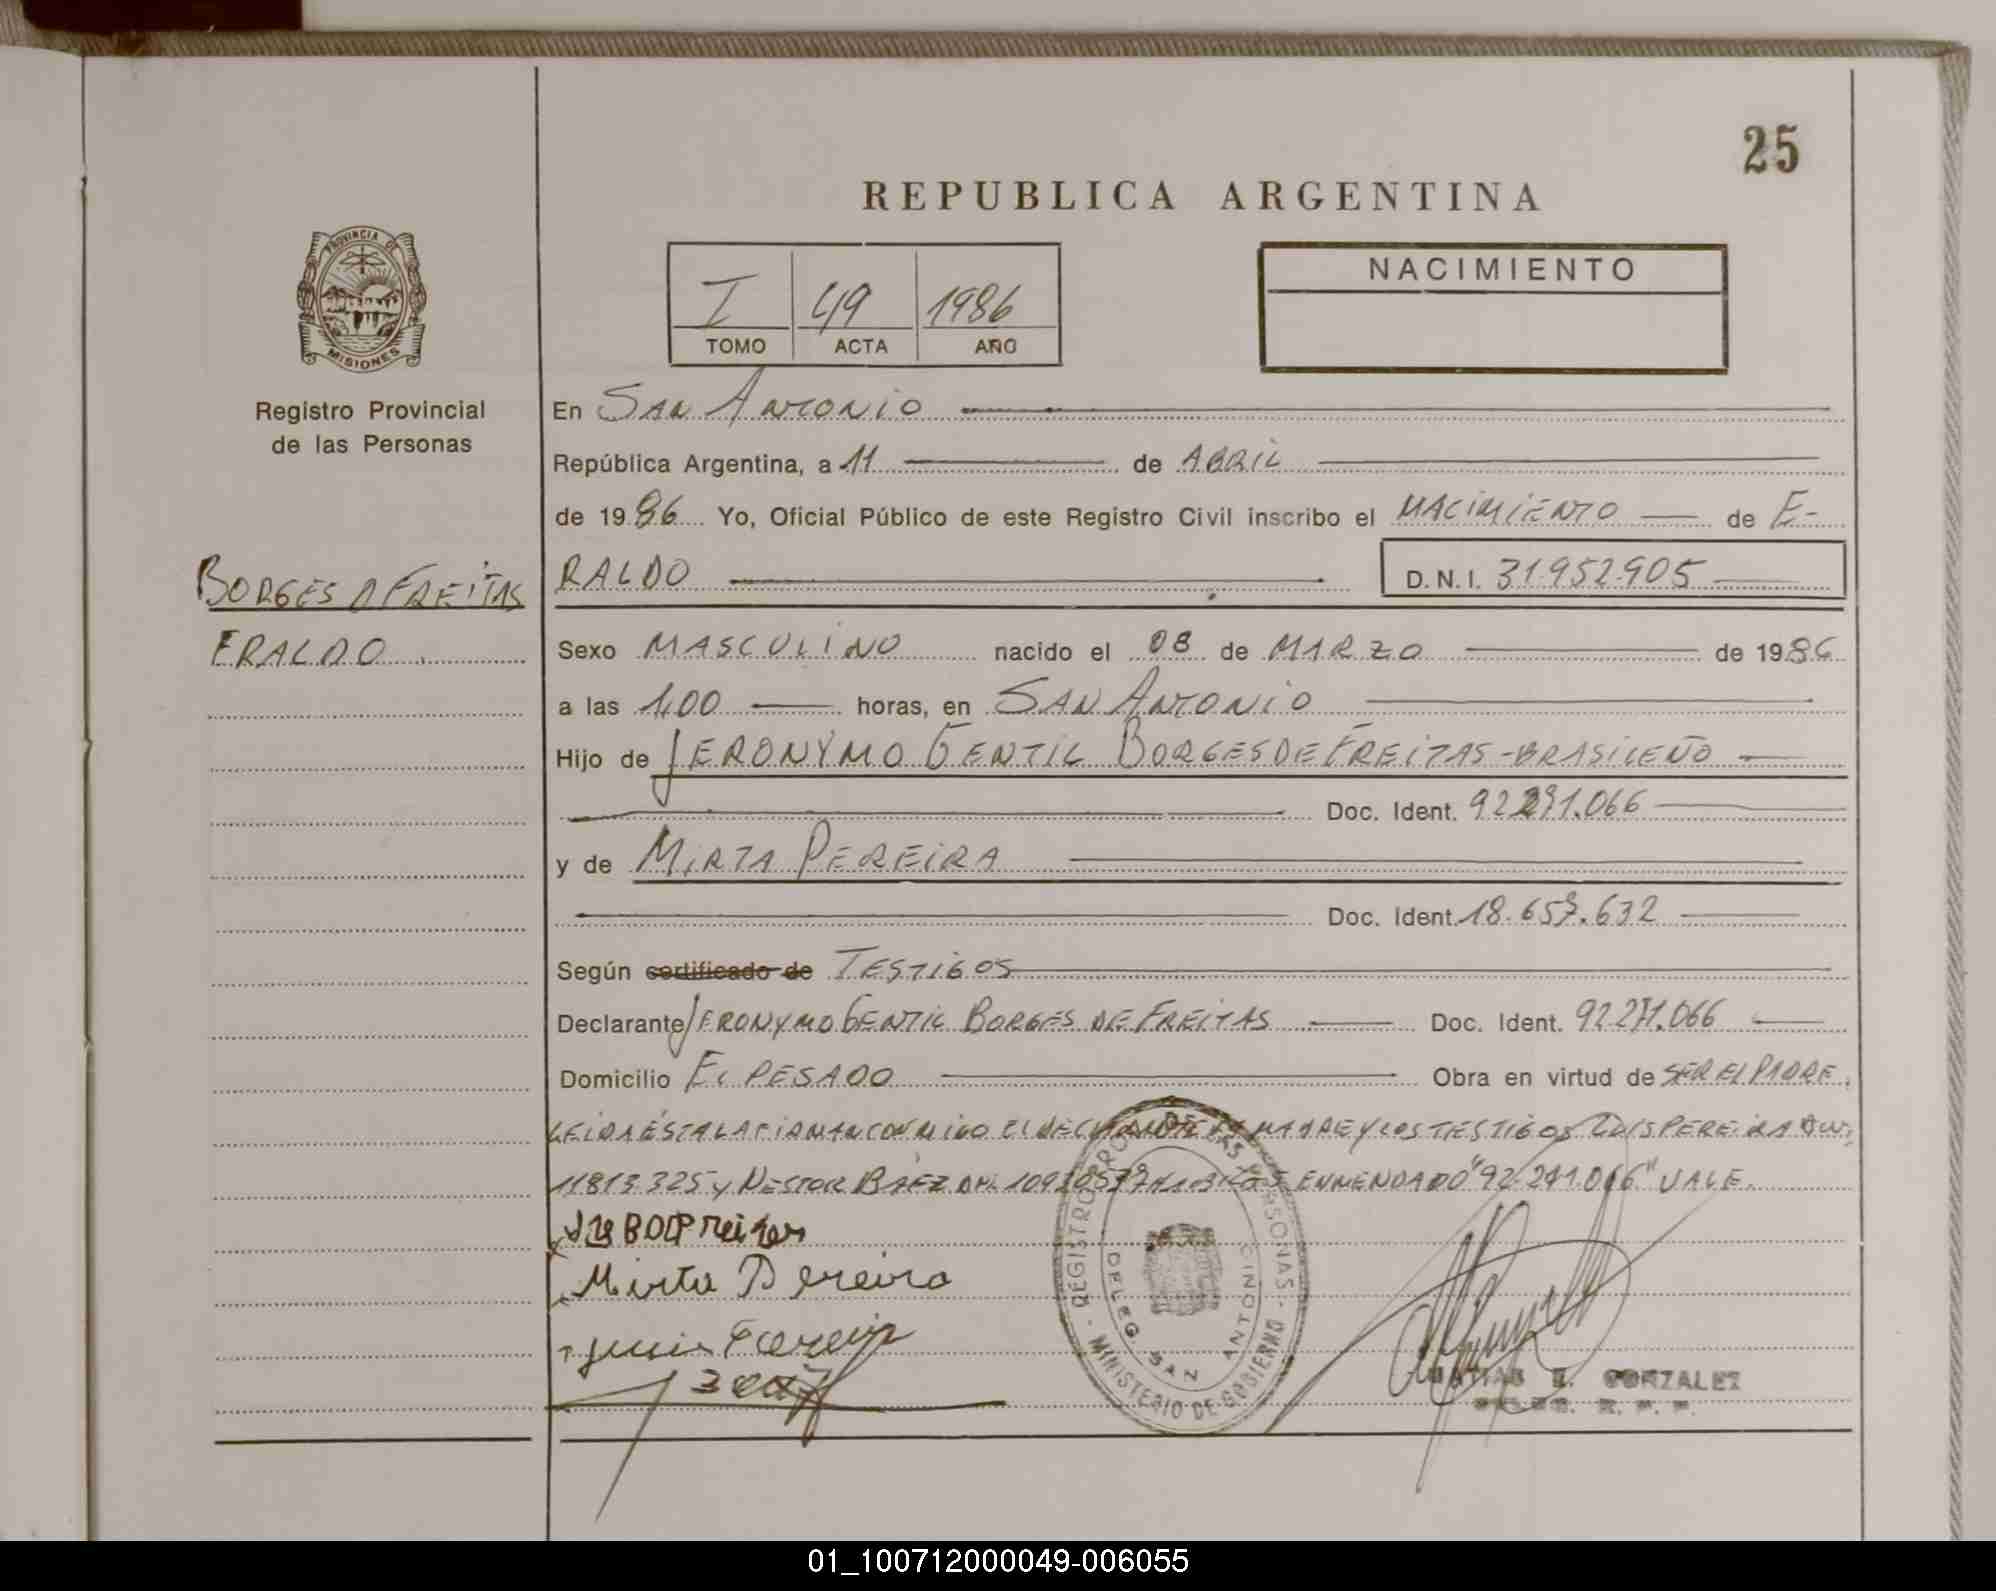 25
REPUBLICA ARGENTINA
PROVINCIA DE
MISIONES
Registro Provincial
de las Personas
I 49 1986
TOMO ACTA AÑO
NACIMIENTO
En SAN ANTONIO
República Argentina, a 11 de ABRIL
de 1986 Yo, Oficial Público de este Registro Civil inscribo el NACIMIENTO de E-
RALDO D.N.I. 31.952.905
BORGES D FREITAS
ERALDO
Sexo MASCULINO nacido el 08 de MARZO de 1986
a las 1,00 horas, en SAN ANTONIO
Hijo de JERONYMO GENTIL BORGES DE FREITAS - BRASILEÑO
Doc. Ident. 92.271.066
y de MIRTA PEREIRA
Doc. Ident. 18.657.632
Según certificado de TESTIGOS
Declarante JERONYMO GENTIL BORGES DE FREITAS Doc. Ident. 92.271.066
Domicilio EL PESADO Obra en virtud de SER EL PADRE.
LEIDA ESTA LA FIRMAN CONMIGO EL DECLARANTE LA MADRE Y LOS TESTIGOS LUIS PEREIRA DNI.
11813.325 y NESTOR BAEZ DNI. ENMENDADO "92.271.066" VALE.
Mirta Pereira
Luis Pereira
Baez
REGISTRO PROV. DE LAS PERSONAS
MINISTERIO DE GOBIERNO
DELEG. SAN ANTONIO
MATIAS E. GONZALEZ
R. P. P.
01_100712000049-006055